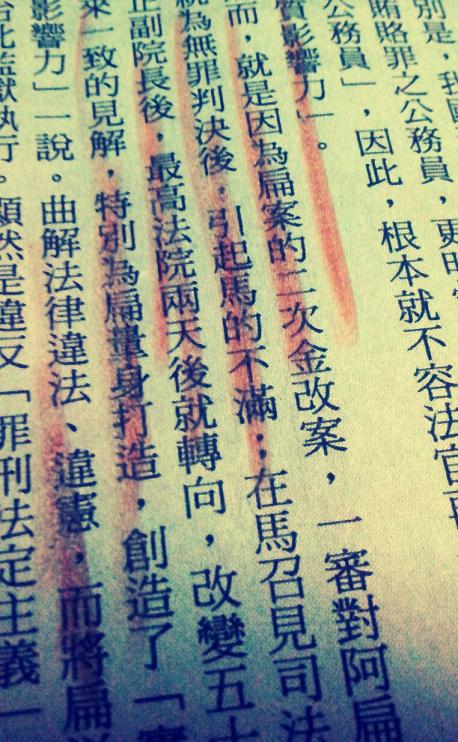 別是，我國
賄賂罪之公務員，更明
公務員」，因此，根本就不容法官再
質影響力」。
而，就是因為扁案的二次金改案，一審對阿扁
為無罪判決後，引起馬的不滿；在馬召見司法
正副院長後，最高法院兩天後就轉向，改變五十
來一致的見解，特別為扁量身打造，創造了「實
影響力」一說。曲解法律違法、違憲，而將扁送
台北監獄執行。顯然是違反「罪刑法定主義」